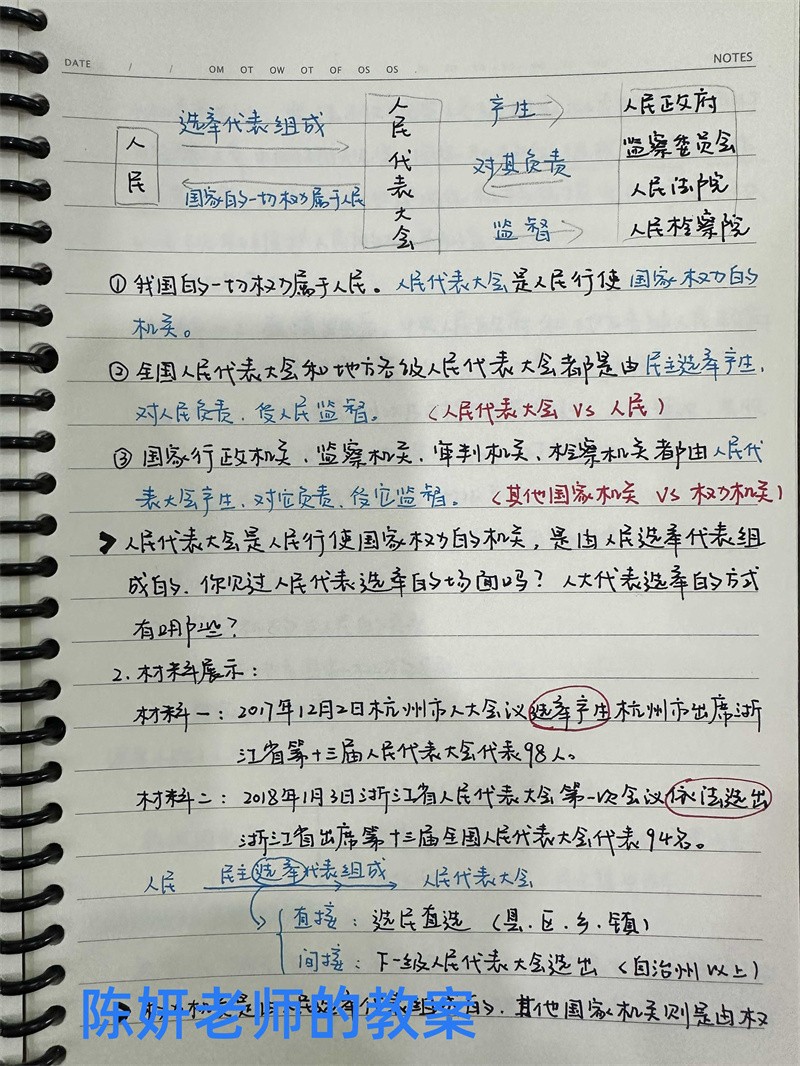 DATE / / OM OT OW OT OF OS OS NOTES
人民
选举代表组成
国家的一切权力属于人民
人民代表大会
产生
对其负责
监督
人民政府
监察委员会
人民法院
人民检察院
①我国的一切权力属于人民。人民代表大会是人民行使国家权力的
机关。
②全国人民代表大会和地方各级人民代表大会都是由民主选举产生,
对人民负责、受人民监督。(人民代表大会 VS 人民)
③国家行政机关、监察机关、审判机关、检察机关都由人民代
表大会产生、对它负责、受它监督。(其他国家机关 VS 权力机关)
➤人民代表大会是人民行使国家权力的机关,是由人民选举代表组
成的。你见过人民代表选举的场面吗?人大代表选举的方式
有哪些?
2.材料展示:
材料一:2017年12月2日杭州市人大会议选举产生杭州市出席浙
江省第十三届人民代表大会代表98人。
材料二:2018年1月3日浙江省人民代表大会第一次会议依法选出
浙江省出席第十三届全国人民代表大会代表94名。
人民 民主选举代表组成 人民代表大会
直接:选民直选(县、区、乡、镇)
间接:下一级人民代表大会选出(自治州以上)
机关是由人民选举代表组成的,其他国家机关则是由权
陈妍老师的教案